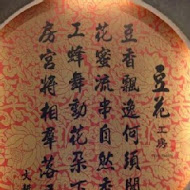 豆花工坊
豆香飄逸何須問
花蜜流串自然香
工蜂舞動花朵下
房宮將相群落